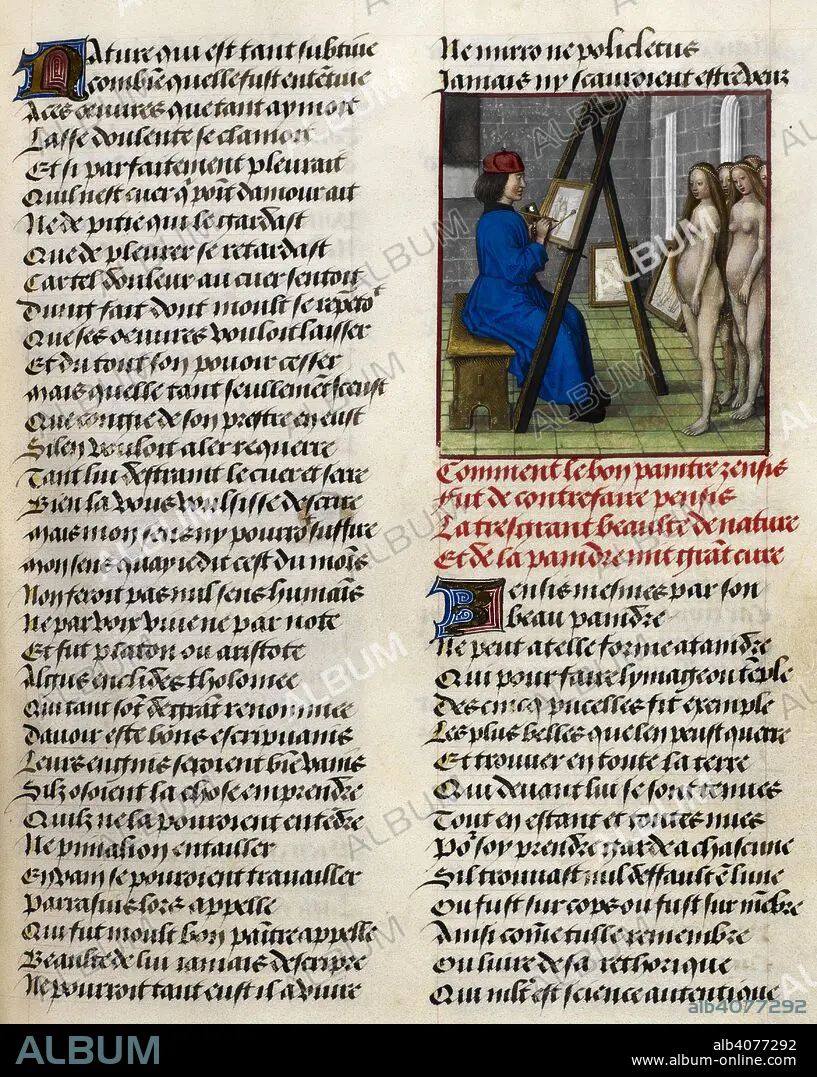 Nature qui est tant subtiue
combie quelle fust ententiue
A ces oeuures que tant aymoit
Lasse doulente se clamoit
Et si parfaitement pleuroit
Quil nest cuer q point damour ait
Ne de pitie qui le gardast
Que de pleurer se retardast
Car tel douleur au cuer sentoit
Dung fait dont moult se repetoit
Que ses oeuures vouloit laisser
Et du tout son pouoir cesser
Mais quelle tant seullement sceust
Que congie de son prestre en eust
Si len vouloit aler requerre
Tant lui destraint le cuer et serre
Bien la vous voulsisse descrire
Mais mon sens ny pourroit suffire
Mon sens quay ie dit cest du mois
Non feroit pas nul sens humais
Ne par voix viue ne par note
Et fut platon ou aristote
Algus euclides tholomee
Qui tant sot de grat renommee
Dauoir este bons escripuains
Leurs engins seroient bie vains
Silz osoient la chose emprendre
Quilz ne la pouroient entedre
Ne pimalion entailler
En vain se pouroient trauailler
Parrasius lors appelle
Qui fut moult bon paitre appelle
Beaulte de lui iamais descripre
Ne pourroit tant eust il a viure
Ne mirro ne policletus
Jamais ny scauroient estre venz
Comment le bon paintre zensis
Fut de contrefaire pensis
La tresgrant beaulte de nature
Et de la paindre mit grat cure
Zensis mesmes par son
beau paindre
Ne peut a telle forme ataindre
Qui pour faire lymage ou teple
Des cincq pucelles fit exemple
Les plus belles quelen peust querre
Et trouuer en toute la terre
Qui deuant lui se sont tenues
Tout en estant et toutes nues
Po soy prendre garde a chascune
Sil trouuast nul deffault en lune
Ou fust sur cops ou fust sur mebre
Ainsi come tulle remembre
Ou liure de sa rethorique
Qui mlt est science autentique
alb4077292
ALBUM
alb4077292
www.album-online.com